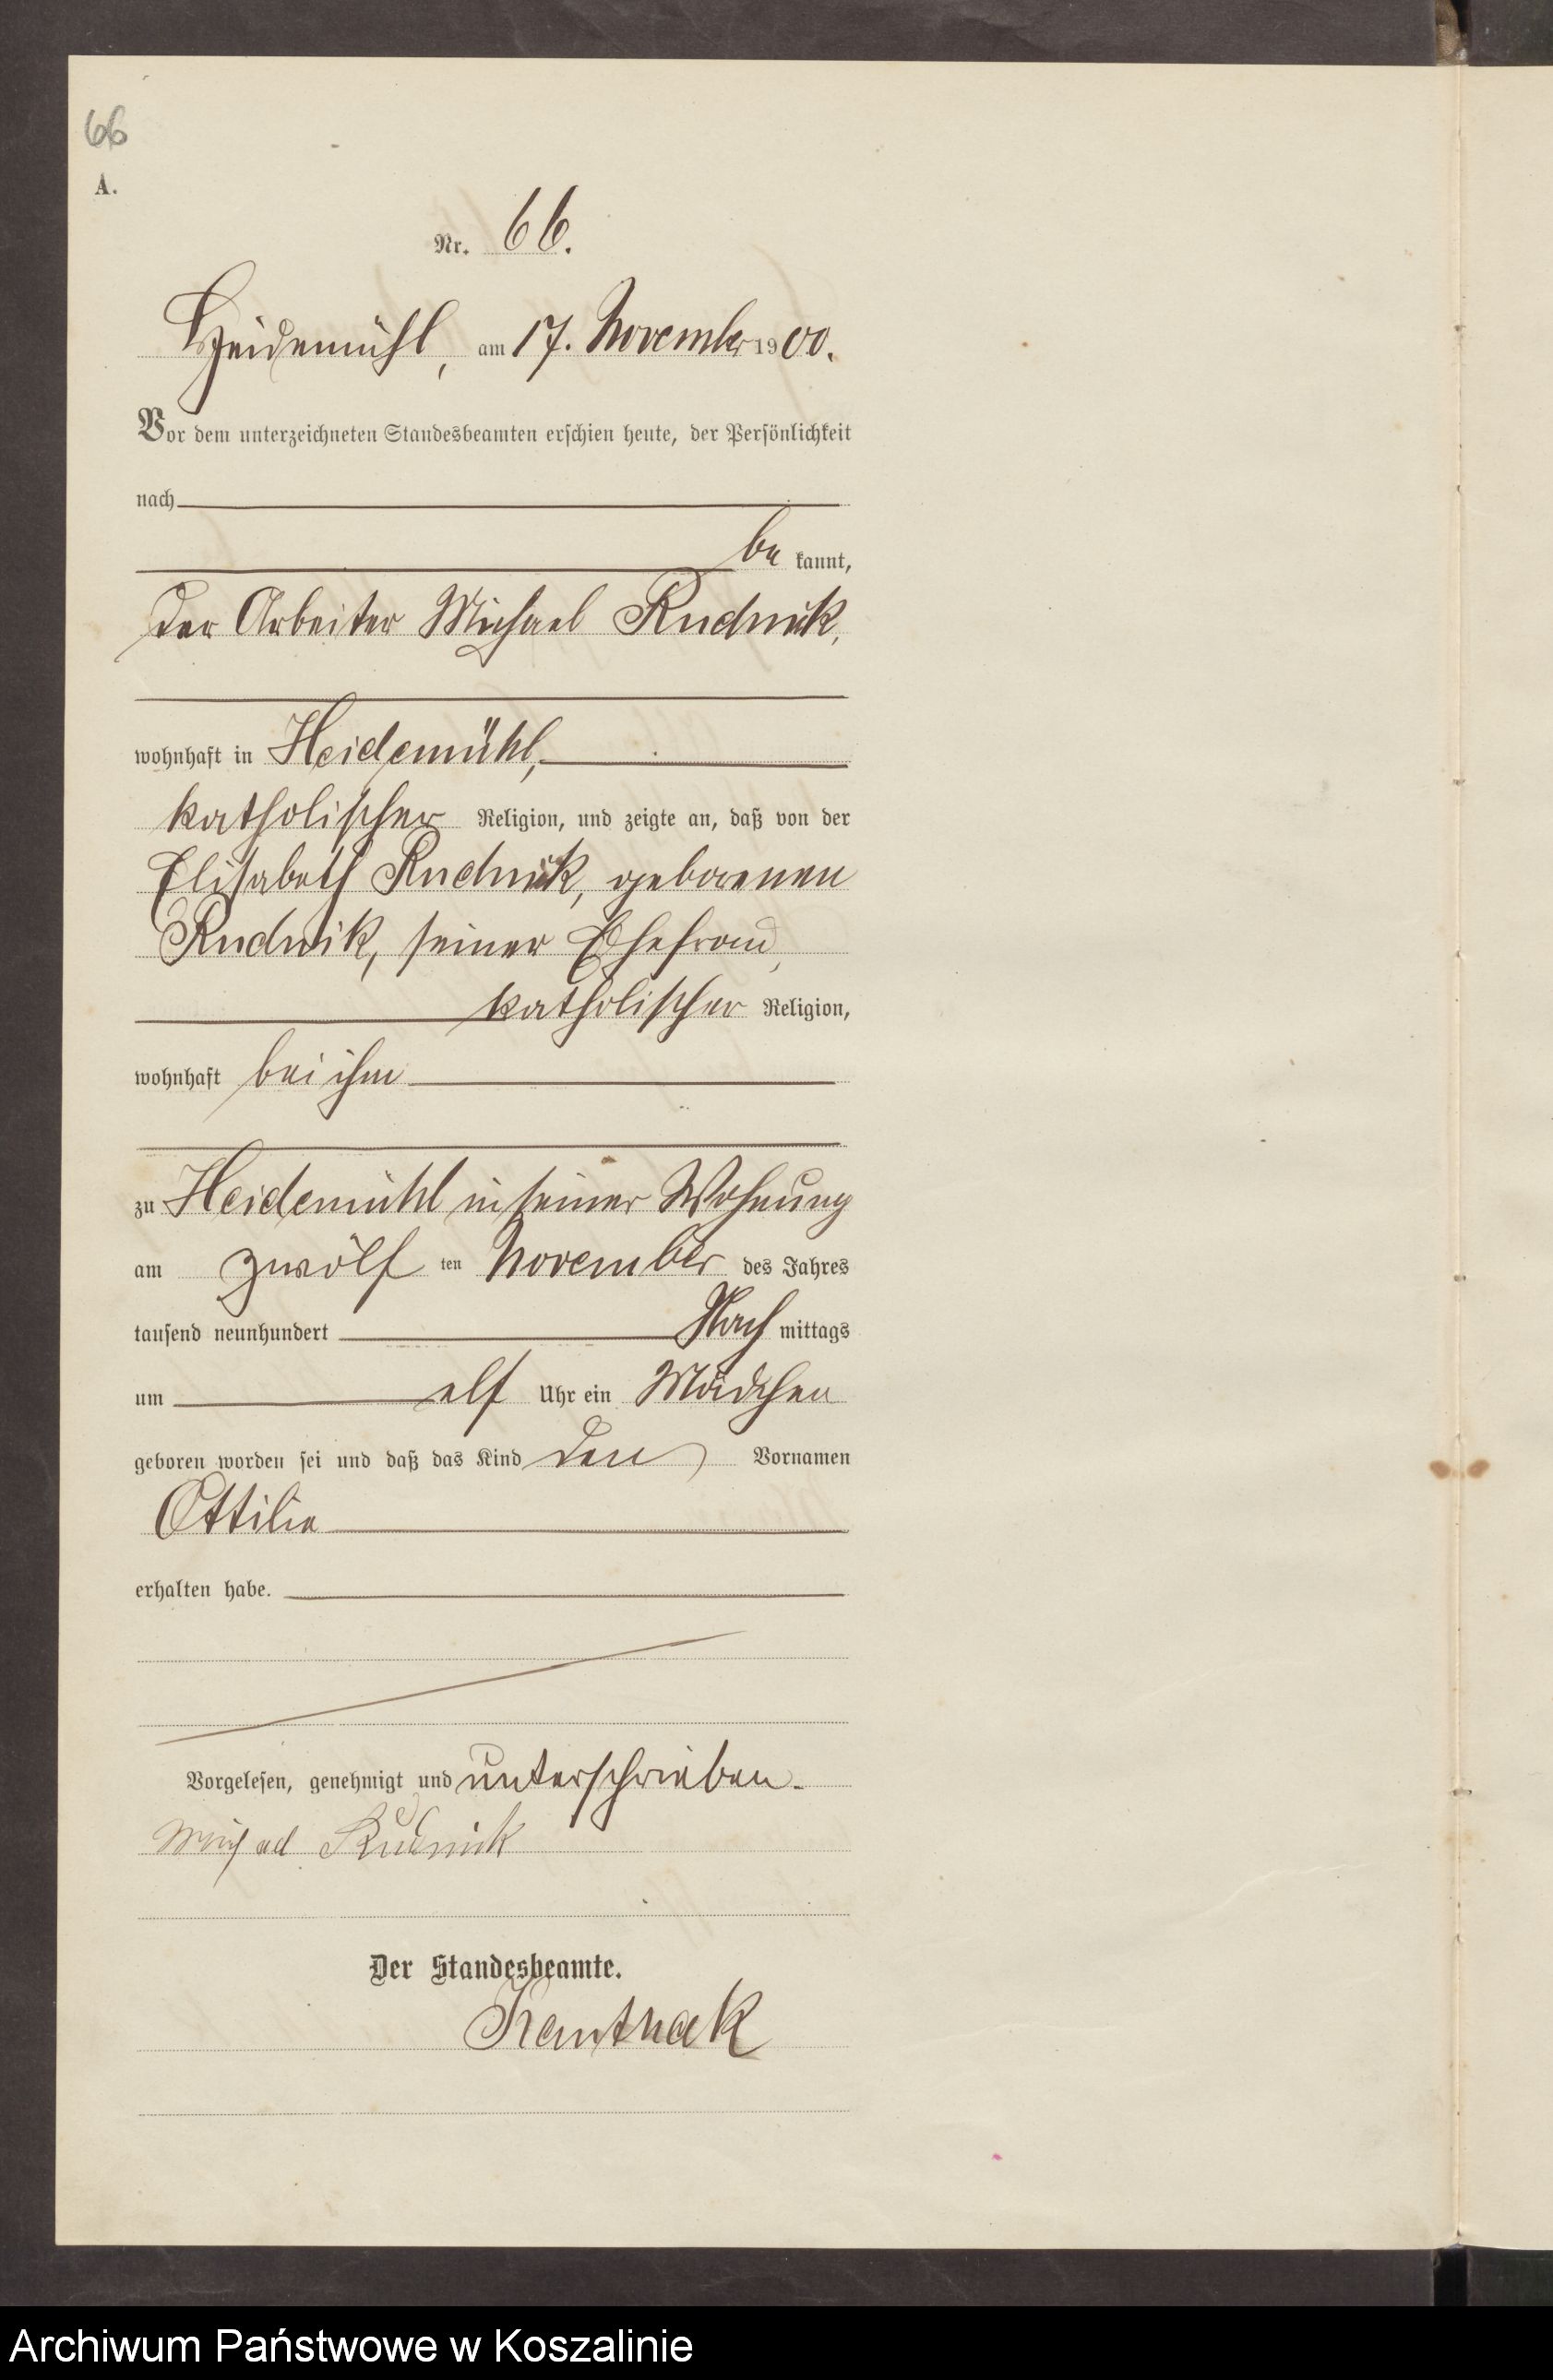 66
A.
Nr. 66.
Heidemühl, am 17. November 1900.
Vor dem unterzeichneten Standesbeamten erschien heute, der Persönlichkeit
nach
be kannt,
der Arbeiter Michael Rudnik,
wohnhaft in Heidemühl,
katholischer Religion, und zeigte an, daß von der
Elisabeth Rudnik, geborenen
Rudnik, seiner Ehefrau,
katholischer Religion,
wohnhaft bei ihm
zu Heidemühl in seiner Wohnung
am zwölf ten November des Jahres
tausend neunhundert Nach mittags
um elf Uhr ein Mädchen
geboren worden sei und daß das Kind den Vornamen
Ottilie
erhalten habe.
Vorgelesen, genehmigt und unterschrieben.
Michael Rudnick
Der Standesbeamte.
Archiwum Państwowe w Koszalinie